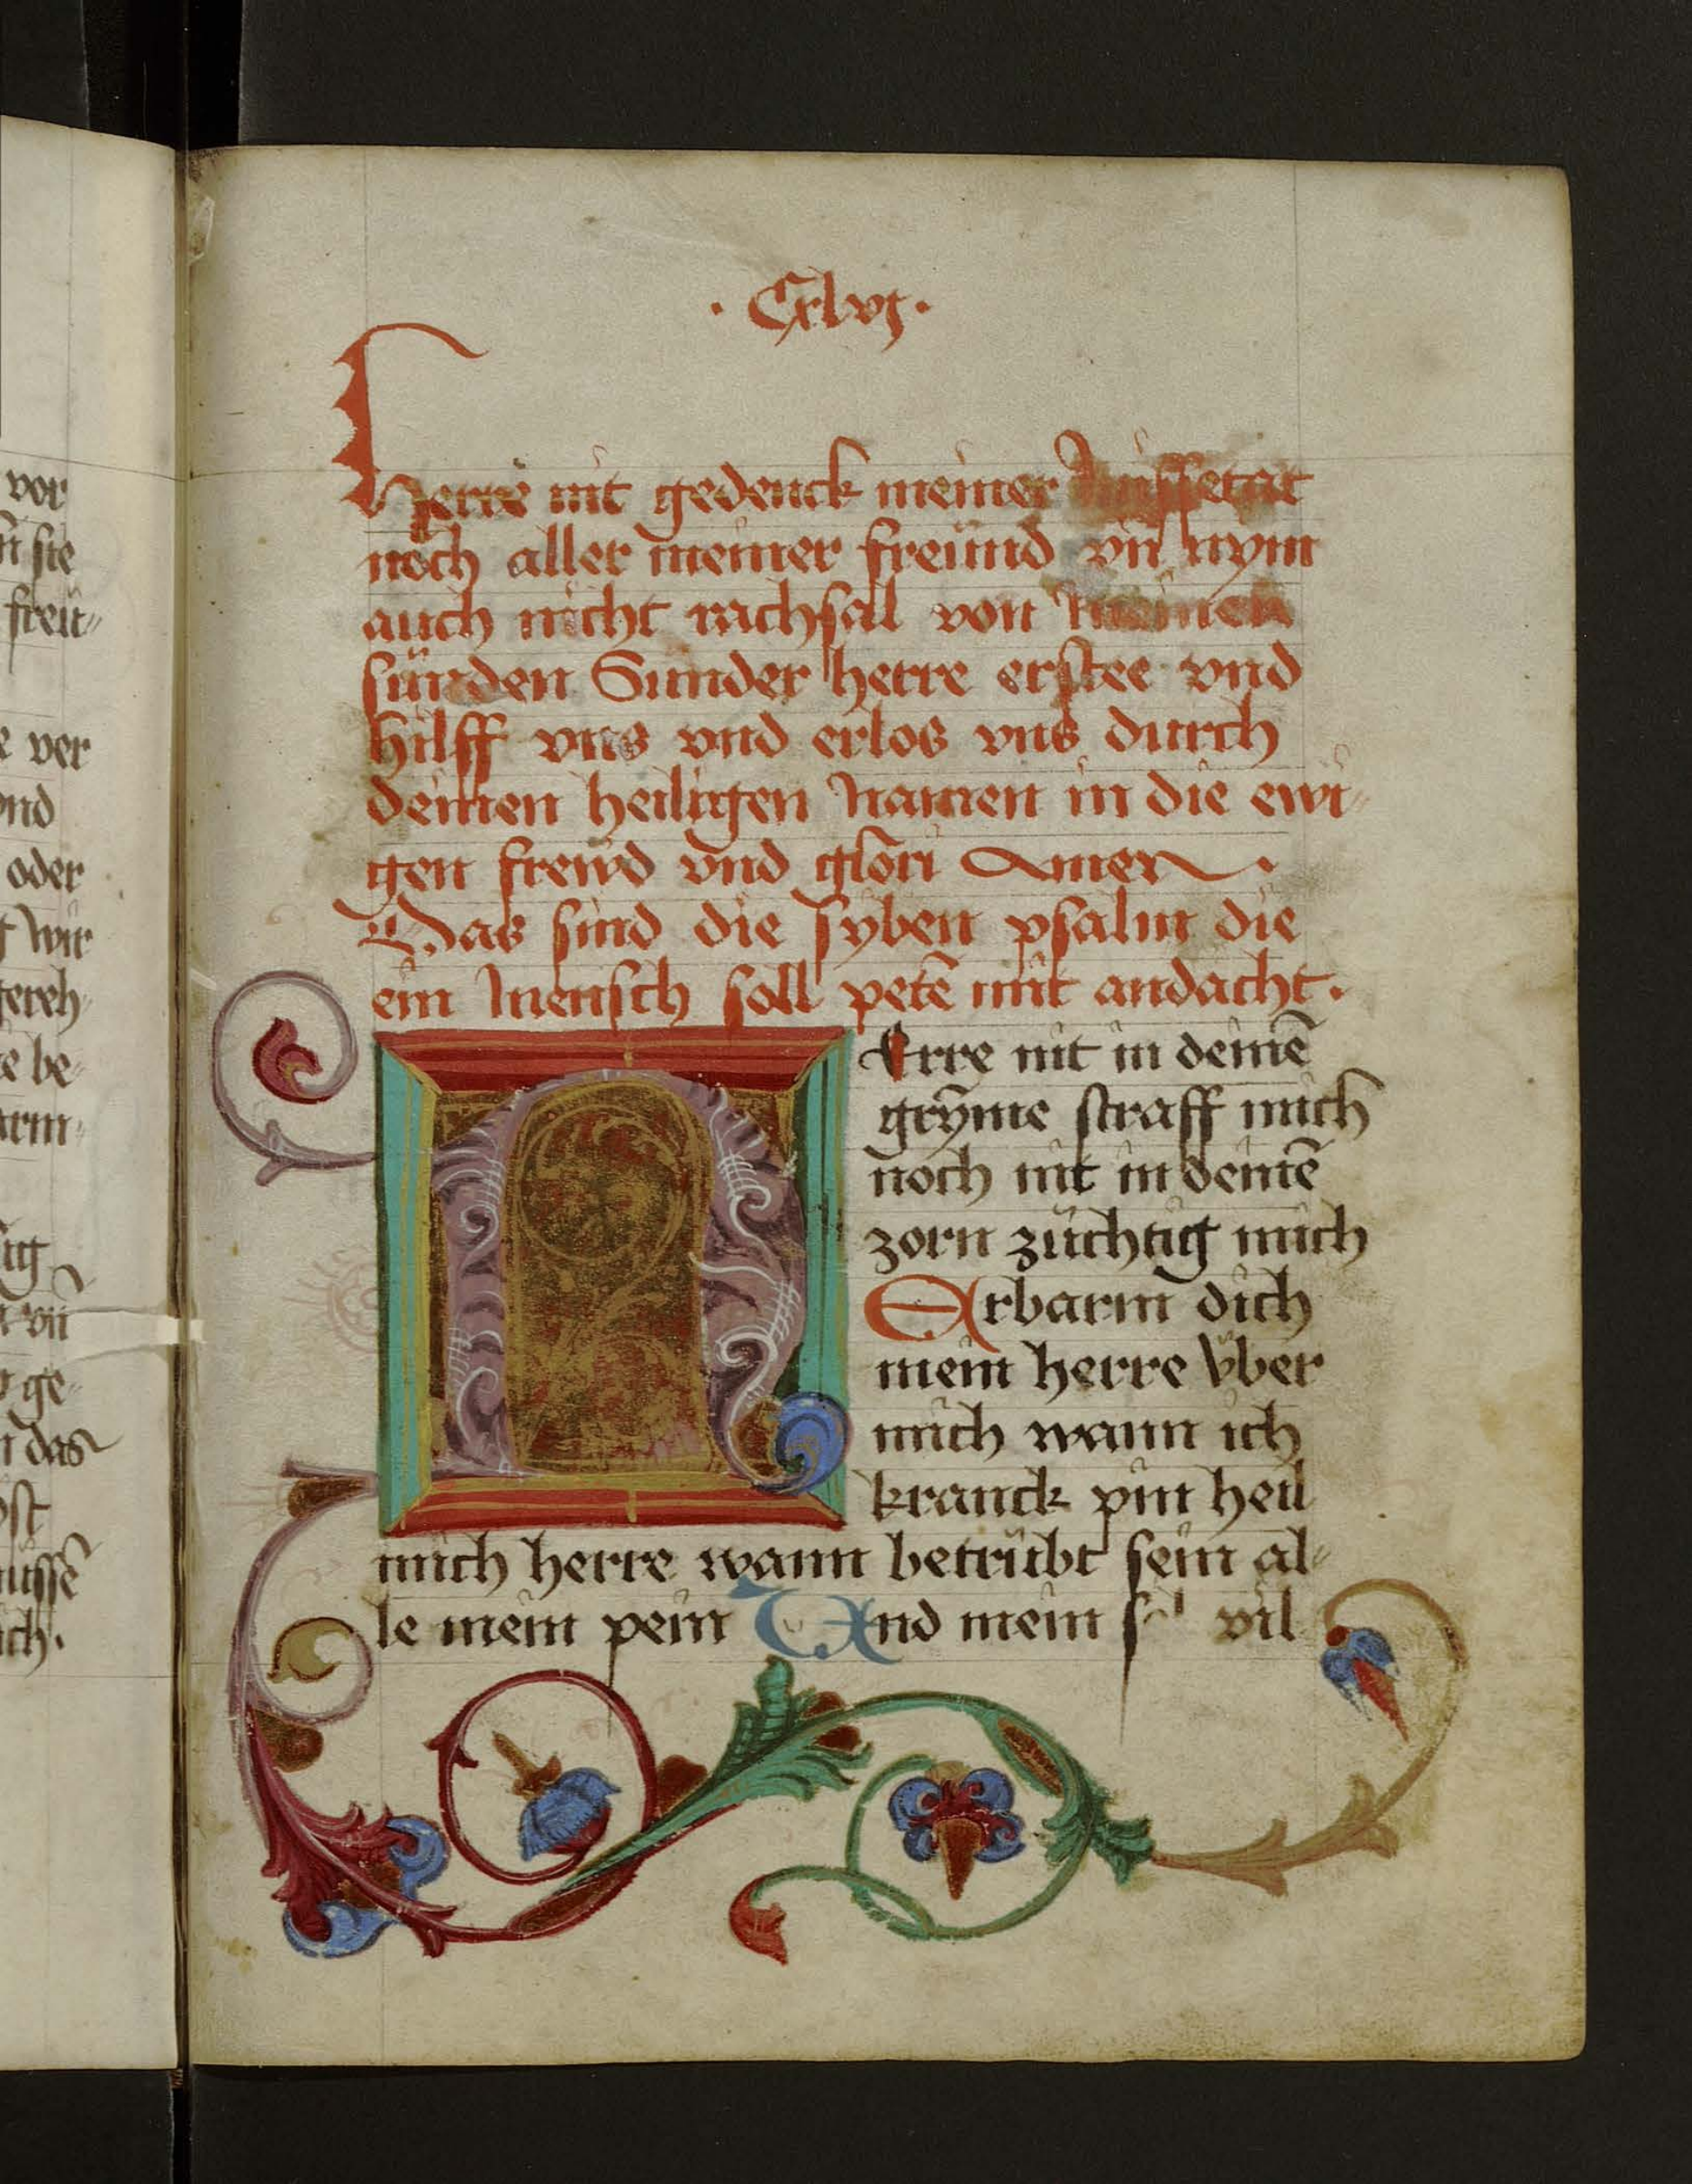 vor
n̄ sie
freü-
e ver
ond
oder
wir
tereh-
te be-
arm-
tig
vn̄
ge-
das
ost
üssē
ich.
· Cxlvj ·
Herre nit gedenck meiner missetat
noch aller meiner freünd vn̄ nym
auch nicht rachsal von meinen
sünden Sunder herre erstee vnd
hilff vns vnd erlos vns durch
deinen heiligen namen in die ewi-
gen frewd vnd glori Amen ·
Das sind die syben psalm die
ein mensch soll petē mit andacht ·
Erre nit in deinē
grȳme straff mich
noch nit in deinē
zorn züchtig mich
Erbarm dich
mein herre vber
mich wann ich
kranck pin heil
mich herre wann betrübt sein al-
le mein pein Vnd mein vil